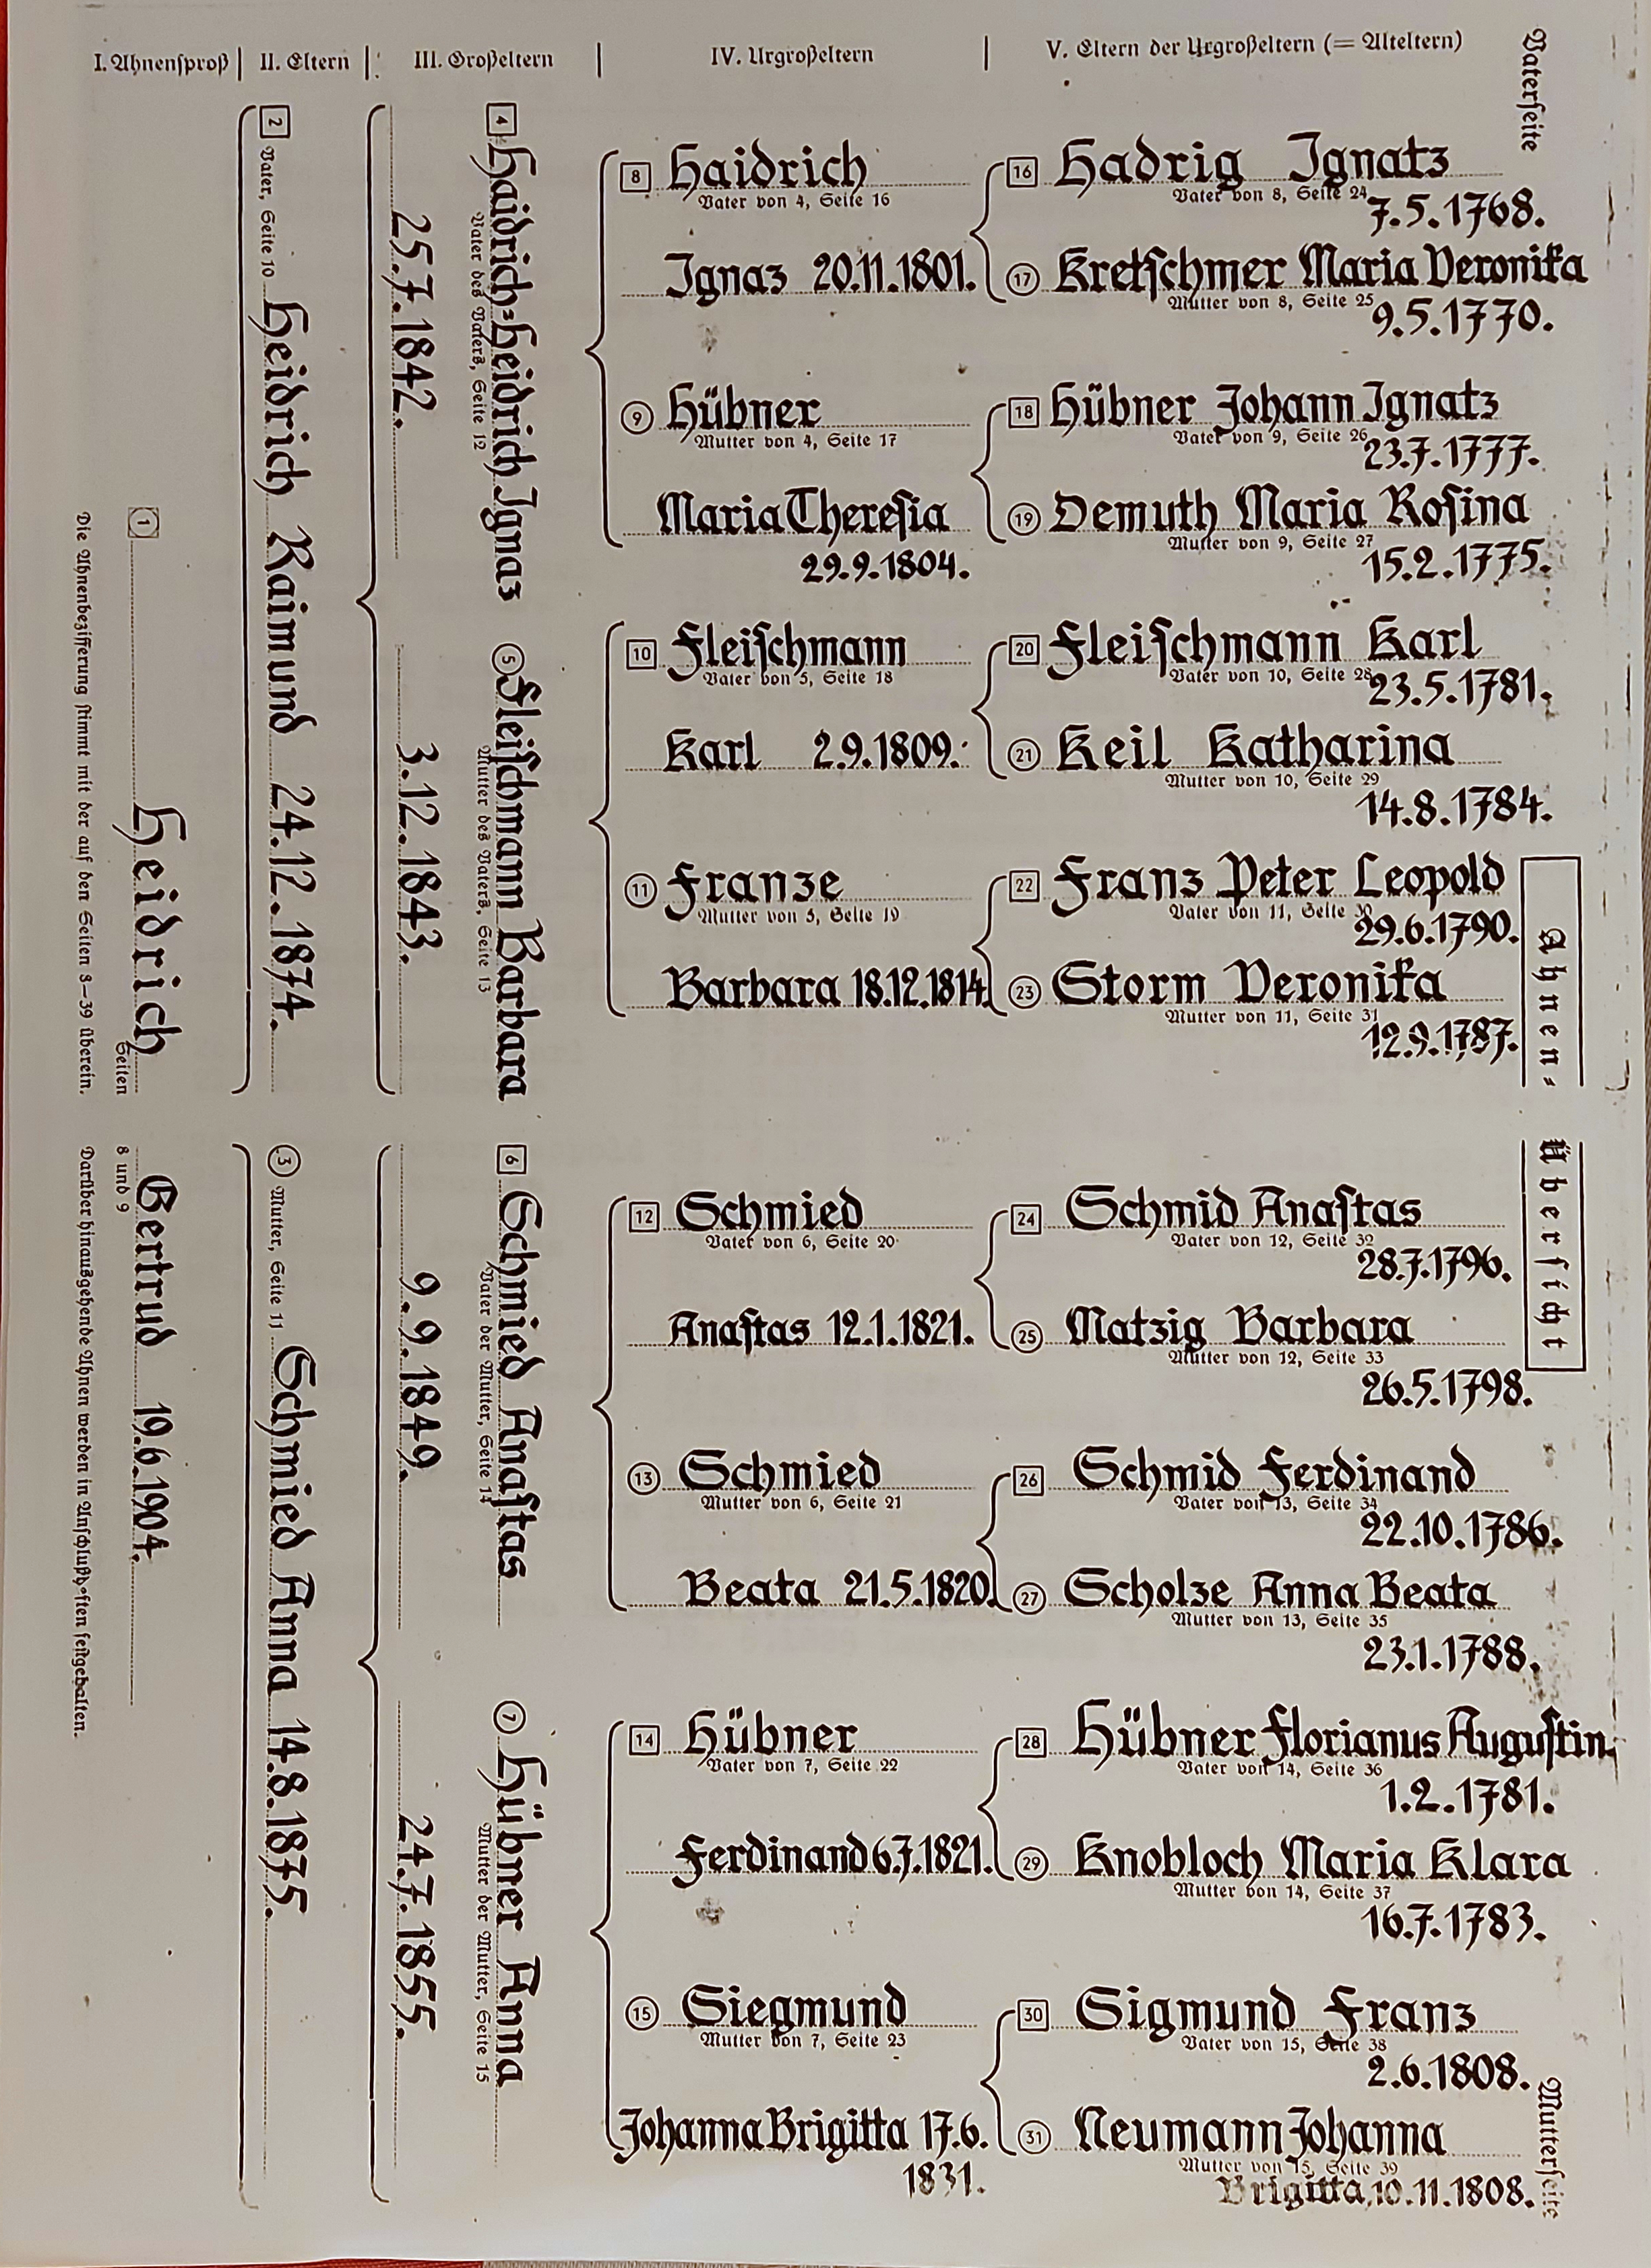 I. Ahnensproß | II. Eltern | III. Großeltern | IV. Urgroßeltern | V. Eltern der Urgroßeltern (= Alteltern)
Vaterseite
Ahnen-
Übersicht
1
Heidrich
Seiten
8 und 9
Gertrud 19.6.1904.
Die Ahnenbezifferung stimmt mit der auf den Seiten 8—39 überein.
Darüber hinausgehende Ahnen werden in festgehalten.
2 Vater, Seite 10 Heidrich Raimund 24.12.1874.
3 Mutter, Seite 11 Schmied Anna 14.8.1875.
4 Haidrich-Heidrich Ignaz
Vater des Vaters, Seite 12
25.7.1842.
5 Fleiſchmann Barbara
Mutter des Vaters, Seite 13
3.12.1843.
6 Schmied Anaſtas
Vater der Mutter, Seite 14
9.9.1849.
7 Hübner Anna
Mutter der Mutter, Seite 15
24.7.1855.
8 Haidrich
Vater von 4, Seite 16
Ignaz 20.11.1801.
9 Hübner
Mutter von 4, Seite 17
Maria Thereſia
29.9.1804.
10 Fleiſchmann
Vater von 5, Seite 18
Karl 2.9.1809.
11 Franze
Mutter von 5, Seite 19
Barbara 18.12.1814
12 Schmied
Vater von 6, Seite 20
Anaſtas 12.1.1821.
13 Schmied
Mutter von 6, Seite 21
Beata 21.5.1820.
14 Hübner
Vater von 7, Seite 22
Ferdinand 6.7.1821.
15 Siegmund
Mutter von 7, Seite 23
Johanna Brigitta 17.6.
1831.
16 Hadrig Ignatz
Vater von 8, Seite 24
7.5.1768.
17 Kretſchmer Maria Veronika
Mutter von 8, Seite 25
9.5.1770.
18 Hübner Johann Ignatz
Vater von 9, Seite 26
23.7.1777.
19 Demuth Maria Roſina
Mutter von 9, Seite 27
15.2.1775.
20 Fleiſchmann Karl
Vater von 10, Seite 28
23.5.1781.
21 Keil Katharina
Mutter von 10, Seite 29
14.8.1784.
22 Franz Peter Leopold
Vater von 11, Seite 30
29.6.1790.
23 Storm Veronika
Mutter von 11, Seite 31
12.9.1787.
24 Schmid Anaſtas
Vater von 12, Seite 32
28.7.1796.
25 Matzig Barbara
Mutter von 12, Seite 33
26.5.1798.
26 Schmid Ferdinand
Vater von 13, Seite 34
22.10.1786.
27 Scholze Anna Beata
Mutter von 13, Seite 35
23.1.1788.
28 Hübner Florianus Auguſtin
Vater von 14, Seite 36
1.2.1781.
29 Knobloch Maria Klara
Mutter von 14, Seite 37
16.7.1783.
30 Sigmund Franz
Vater von 15, Seite 38
2.6.1808.
31 Neumann Johanna
Mutter von 15, Seite 39
Brigitta, 10.11.1808.
Mutterseite